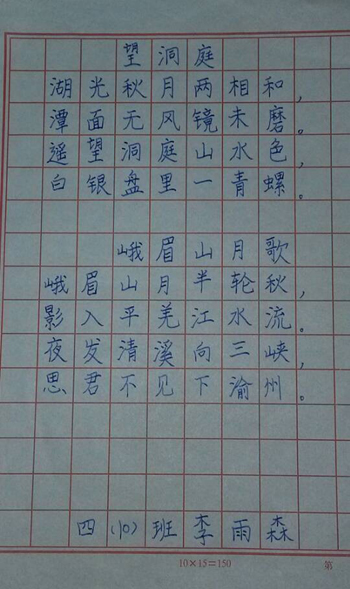 望洞庭
湖光秋月两相和，
潭面无风镜未磨。
遥望洞庭山水色，
白银盘里一青螺。
峨眉山月歌
峨眉山月半轮秋，
影入平羌江水流。
夜发清溪向三峡，
思君不见下渝州。
四(10)班李雨森
10×15=150 第